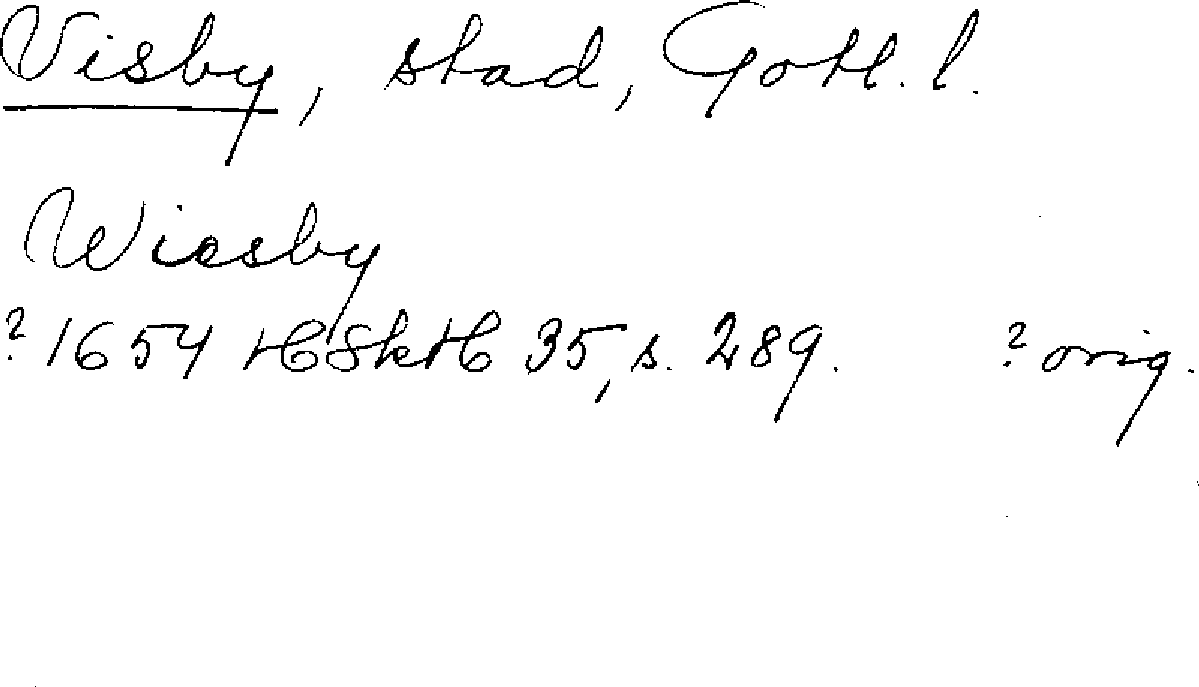 Visby, stad, Gotl. l.
Wiesby
? 1654 HSkH 35, s. 289. ? orig.